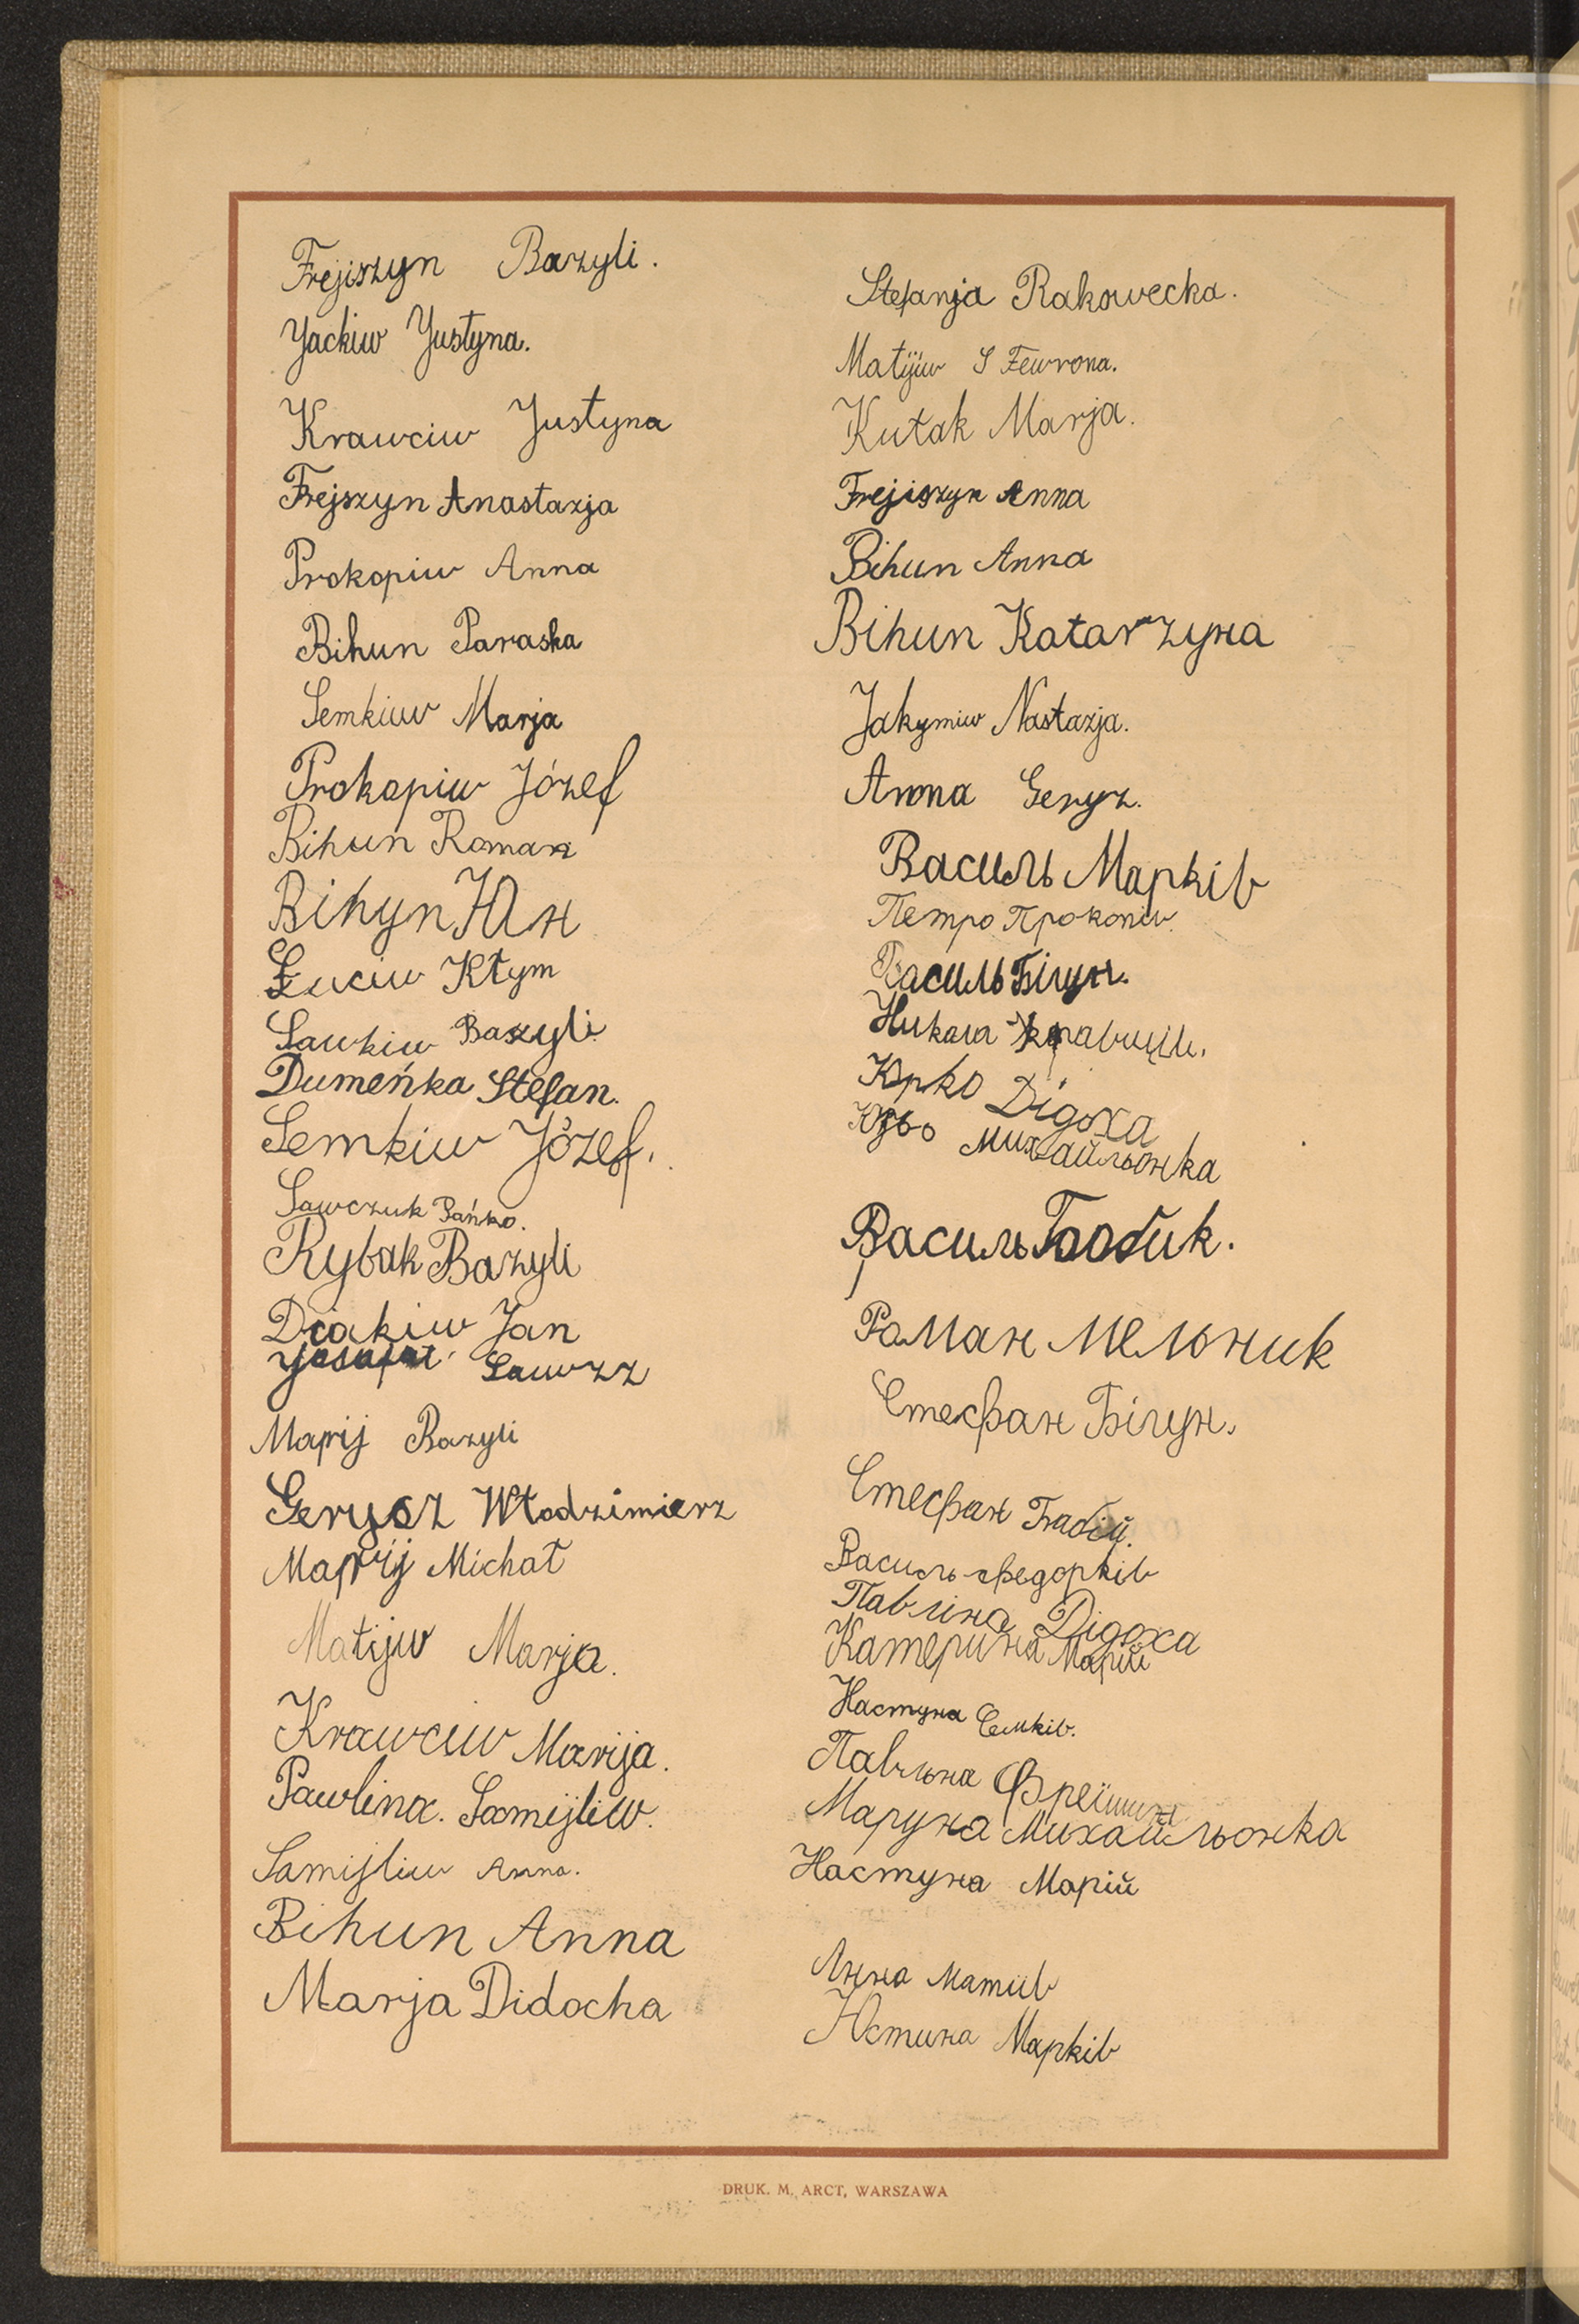 Frejiszyn Bazyli.
Yackiw Yustyna.
Krawciw Justyna
Frejszyn Anastazja
Prokopiw Anna
Bihun Paraska
Semkiw Marja
Prokopiw Józef
Bihun Roman
Bihyn Юн
Łuciw Kłym
Sawkiw Bazyli
Dumeńka Stefan.
Semkiw Józef.
Sawczuk Pańko.
Rybak Bazyli
Dziakiw Jan
Yosafat
Mapij Bazyli
Gerysz Włodzimierz
Mapij Michał
Matijw Marja.
Krawciw Marija.
Pawlina. Samijliw.
Samijliw Anna.
Bihun Anna
Marja Didocha
Stefanja Rakowecka.
Matijiw S Fewrona.
Kutak Marja.
Frejiszyn Anna
Bihun Anna
Bihun Katarzyna
Jakymiw Nastazja.
Anna Gerysz.
Василь Марків
Петро Прокопів.
Василь Бігун.
Микола Кравців.
Юрко Дідоха
Михайльонка
Василь Бабик.
Роман Мельник
Стефан Бігун.
Стефан Бабій.
Василь Федорків
Павліна Дідоха
Катерина Марій
Настуна Семків.
Павльна Фреїшин
Маруна Михайльонка
Настуна Марій
Анна Матіів
Юстина Марків
DRUK. M. ARCT, WARSZAWA